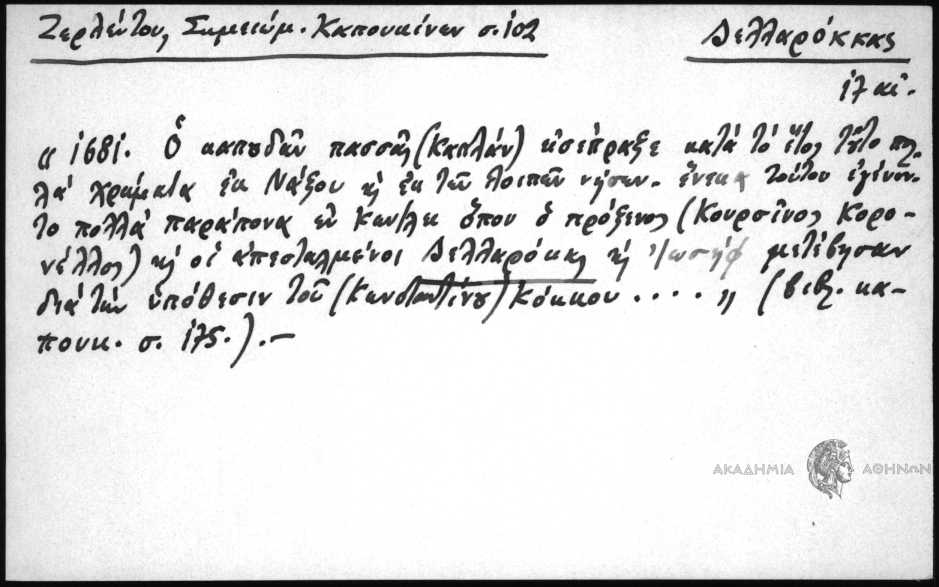 Ζερλέντου, Σημειώμ. Καπουκίνων σ. 102
Δελλαρόκκας
17 αἰ.
„ 1681. Ὁ καπουδὰν πασσᾶς (Καπλὰν) εἰσέπραξε κατὰ τὸ ἔτος τοῦτο πολ-
λὰ χρήματα ἐκ Νάξου κ̀ ἐκ τῶν λοιπῶν νήσων. ἕνεκα τούτου ἐγένον-
το πολλὰ παράπονα ἐν Κων/λει ὅπου ὁ πρόξενος (Κουρσῖνος Κορο-
νέλλος) κ̀ οἱ ἀπεσταλμένοι Δελλαρόκας κ̀ Ἰωσὴφ μετέβησαν
διὰ τὴν ὑπόθεσιν τοῦ (Κωνσταντίνου) Κόκκου .... „ (βιβλ. κα-
πουκ. σ. 175.).—
ΑΚΑΔΗΜΙΑ ΑΘΗΝΩΝ